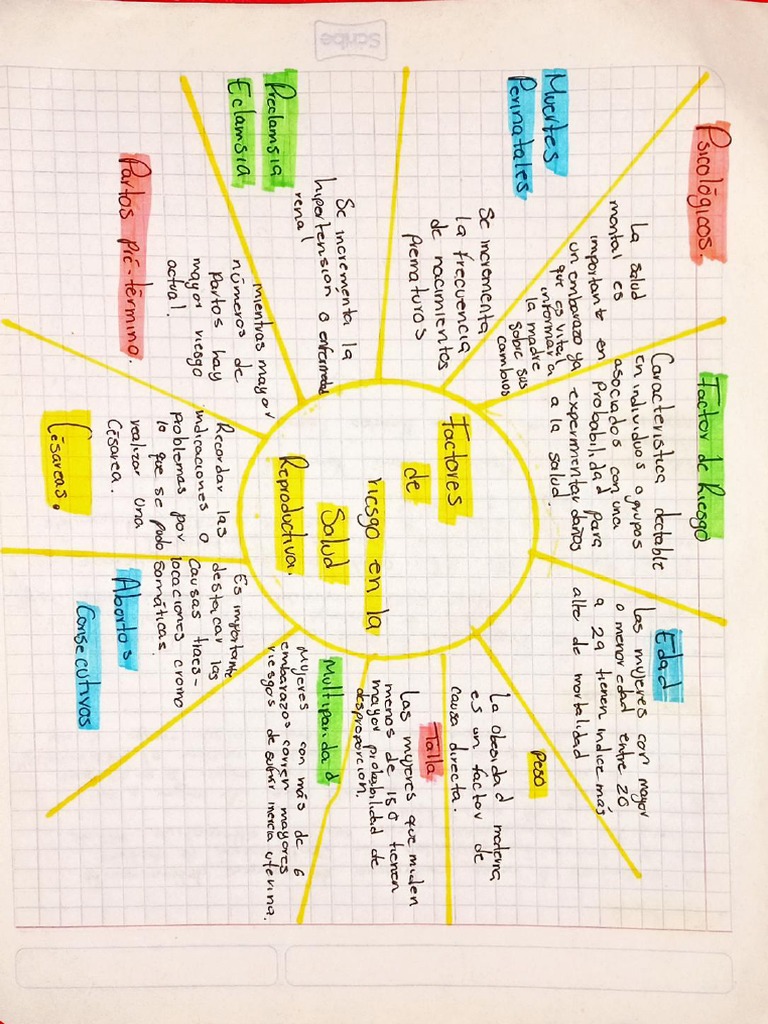 Scribe
Factores
de
riesgo en la
Salud
Reproductiva.
Factor de Riesgo
Característica dectable
en individuos o grupos
asociados con una
Probabilidad para
experimentar daños
a la salud.
Edad
Las mujeres con mayor
o menor edad entre 20
a 29 tienen indice más
alte de mortalidad
Peso
La obesidad materna
es un factor de
causa directa.
Talla
Las mujeres que miden
menos de 150 tienen
mayor probabilidad de
desproporcion.
Multiparidad
Mujeres con más de 6
embarazos corren mayores
riesgos de sufrir inercia uterina.
Abortos
Consecutivos
Es importante
destacar las
Causas traes-
locaciones cromo
somáticas.
Césareas.
Recordar las
indicaciones o
problemas por
lo que se pudo
realizar una
Césarea.
Partos pré-término.
mientras mayor
números de
partos hay
mayor riesgo
actual.
Preclamsia
Eclamsia
Se incrementa la
hipertension o enfermedad
renal
Muertes
Perinatales
Se incrementa
la frecuencia
de nacimientos
Prematuros
Psicológicos.
La salud
mental es
importante en
un embarazo ya
que es vital
informar a
la madre
sobre sus
cambios